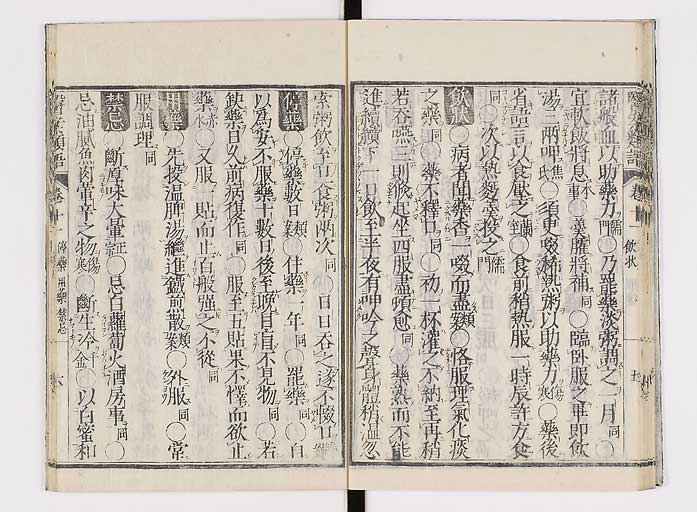 諸般血以助藥力 儒門 ○乃罷藥淡粥調之一月 同 ○
宜軟飯將息 本事 ○羹臛將補 同 ○臨臥服之畢卽飲
湯三兩呷 ○須更啜稀熱粥以助藥力 傷寒 ○藥後
省語言以食壓之 ○食前稍熱服一時辰許方食
同 ○次以熱麪羹投之 儒門
飲狀 ○病者聞藥香一啜而盡 類案 ○恪服理氣化痰
之藥 同 ○藥不釋口 同 ○動一杯灌之不納至再稍
若吞嚥三則倏起坐四服盡頭愈 同 ○藥熱而不能
進續續下一日飲至半夜有呻吟之聲身體稍溫忽
飲狀
五
索粥飲至百食粥兩次 同 ○日日吞之遂不輟口
停藥 ○停藥數日 類案 ○住藥一年 同 ○罷藥 同 ○自
以爲安不服藥十數日後至晩目盲不見物 同 ○若
缺藥日久前病復作 同 ○服至五貼果不懌而欲止
藥 ○又服一貼而止百般强之不從 同
用藥 ○先投溫脾湯繼進鐵煎散 類案 ○外服 同 ○常
服調理 同
禁忌 ○斷厚味大葷 ○忌白蘿蔔火酒房事 同 ○
忌油膩魚肉葷辛之物 傷寒 ○斷生冷 ○以白蜜和
卷十一 停藥 用藥 禁忌
六